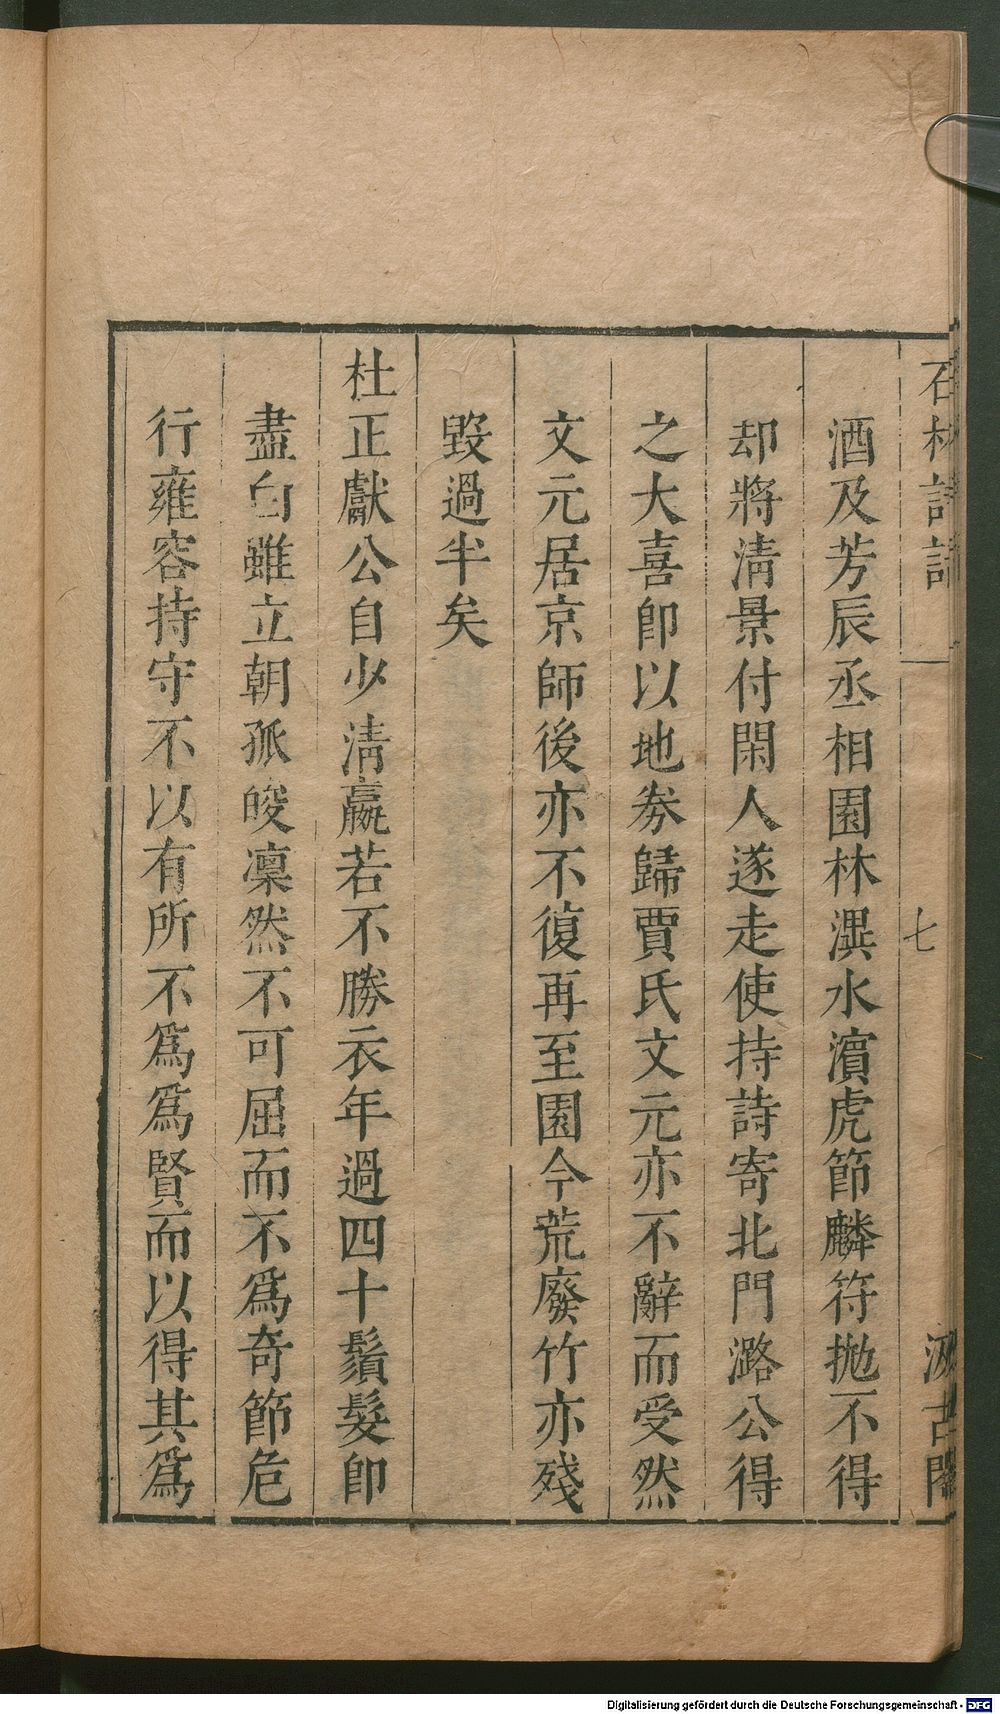 石林詩話
七
汲古閣
酒及芳辰丞相園林潩水濵虎節麟符抛不得
却將清景付閑人遂走使持詩寄北門潞公得
之大喜卽以地券歸賈氏文元亦不辭而受然
文元居京師後亦不復再至園今荒廢竹亦殘
毀過半矣
杜正獻公自少清羸若不勝衣年過四十鬚髮卽
盡白雖立朝孤峻凜然不可屈而不爲奇節危
行雍容持守不以有所不爲爲賢而以得其爲
Digitalisierung gefördert durch die Deutsche Forschungsgemeinschaft - DFG